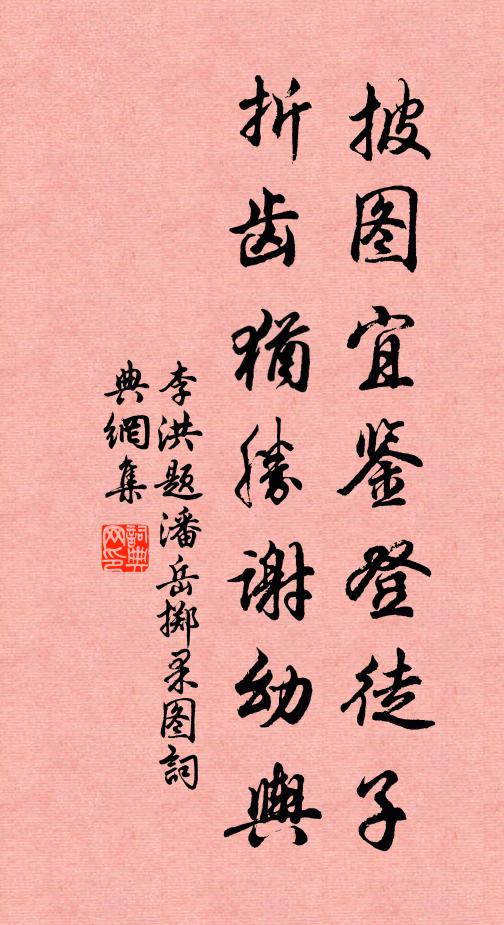 披图宜鉴登徒子
折齿犹勝谢幼舆
李洪题潘岳掷果图詞
典網集
詞典网印